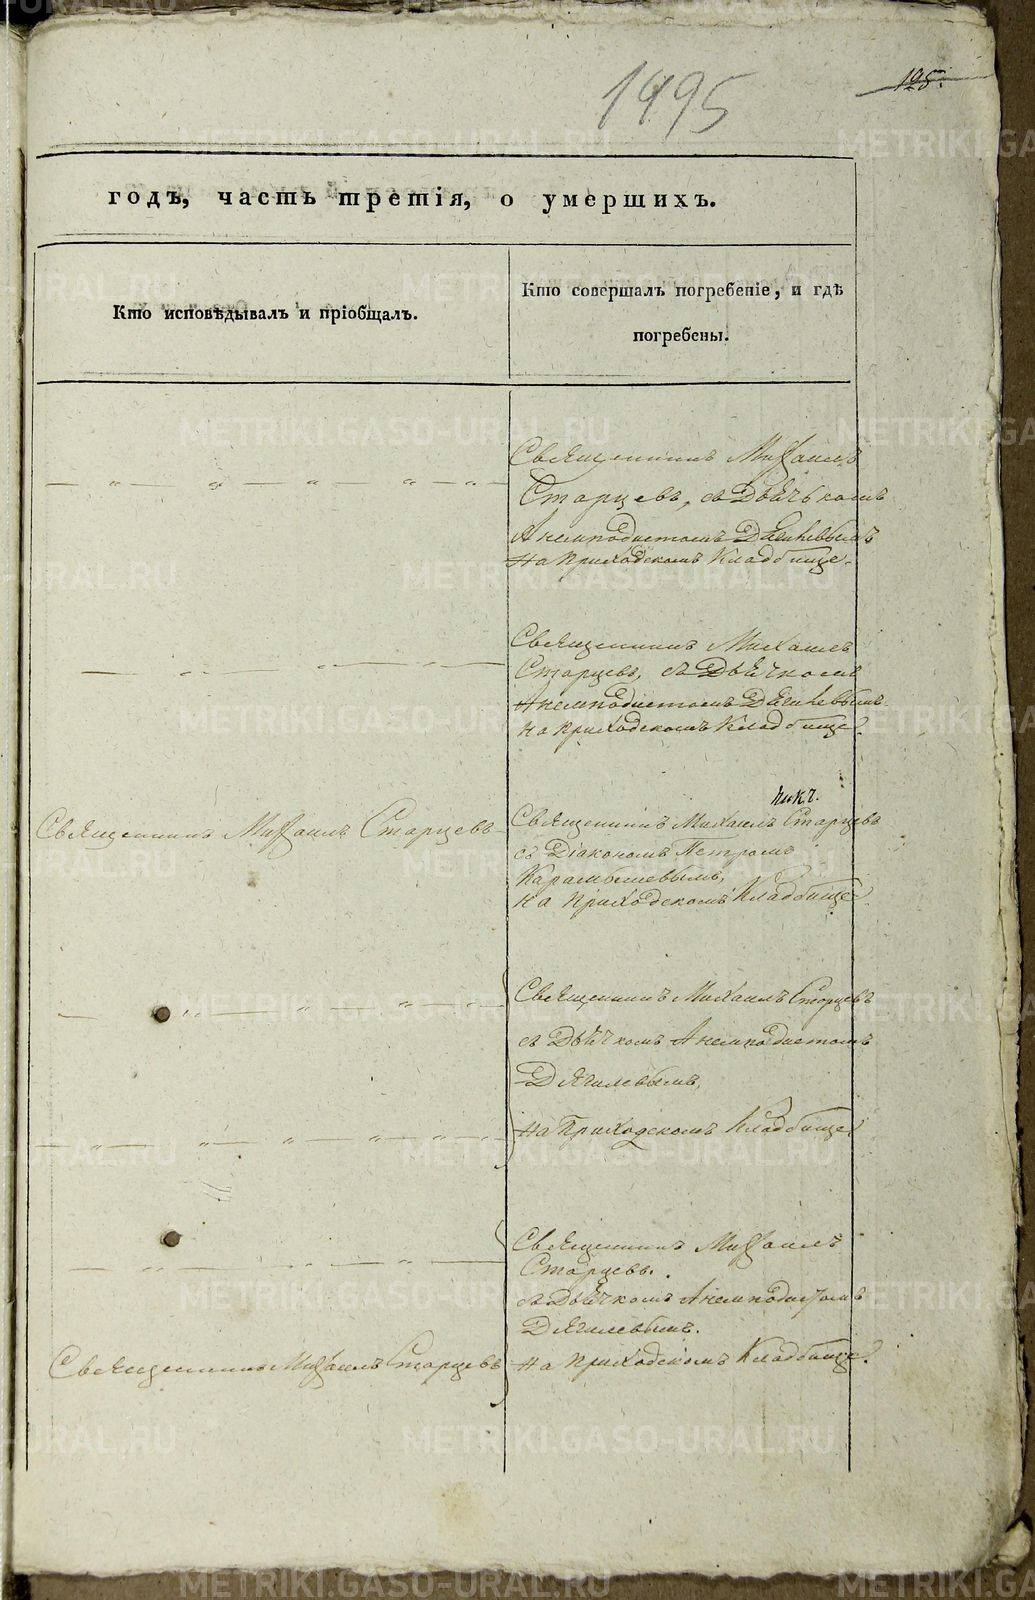 1495
195.
годъ, часть третія, о умершихъ.
Кто исповѣдывалъ и пріобщалъ.
Кто совершалъ погребеніе, и гдѣ
погребены.
Священникъ Михаилъ
Старцевъ, съ Дьячкомъ
Анемподистомъ Дягилевымъ
на приходскомъ Кладбище.
Священникъ Михаилъ
Старцевъ, съ Дьячкомъ
Анемподистомъ Дягилевымъ
на приходскомъ Кладбище.
Священникъ Михаилъ Старцевъ
Священникъ Михаилъ Старцевъ
съ Діакономъ Петромъ
Карамышевымъ,
на приходскомъ Кладбище.
Священникъ Михаилъ Старцевъ
съ Дьячкомъ Анемподистомъ
Дягилевымъ,
на Приходскомъ Кладбище
Священникъ Михаилъ
Старцевъ.
съ Дьячкомъ Анемподистомъ
Дягилевымъ.
Священникъ Михаилъ Старцевъ
на приходскомъ Кладбище.
METRIKI.GASO-URAL.RU